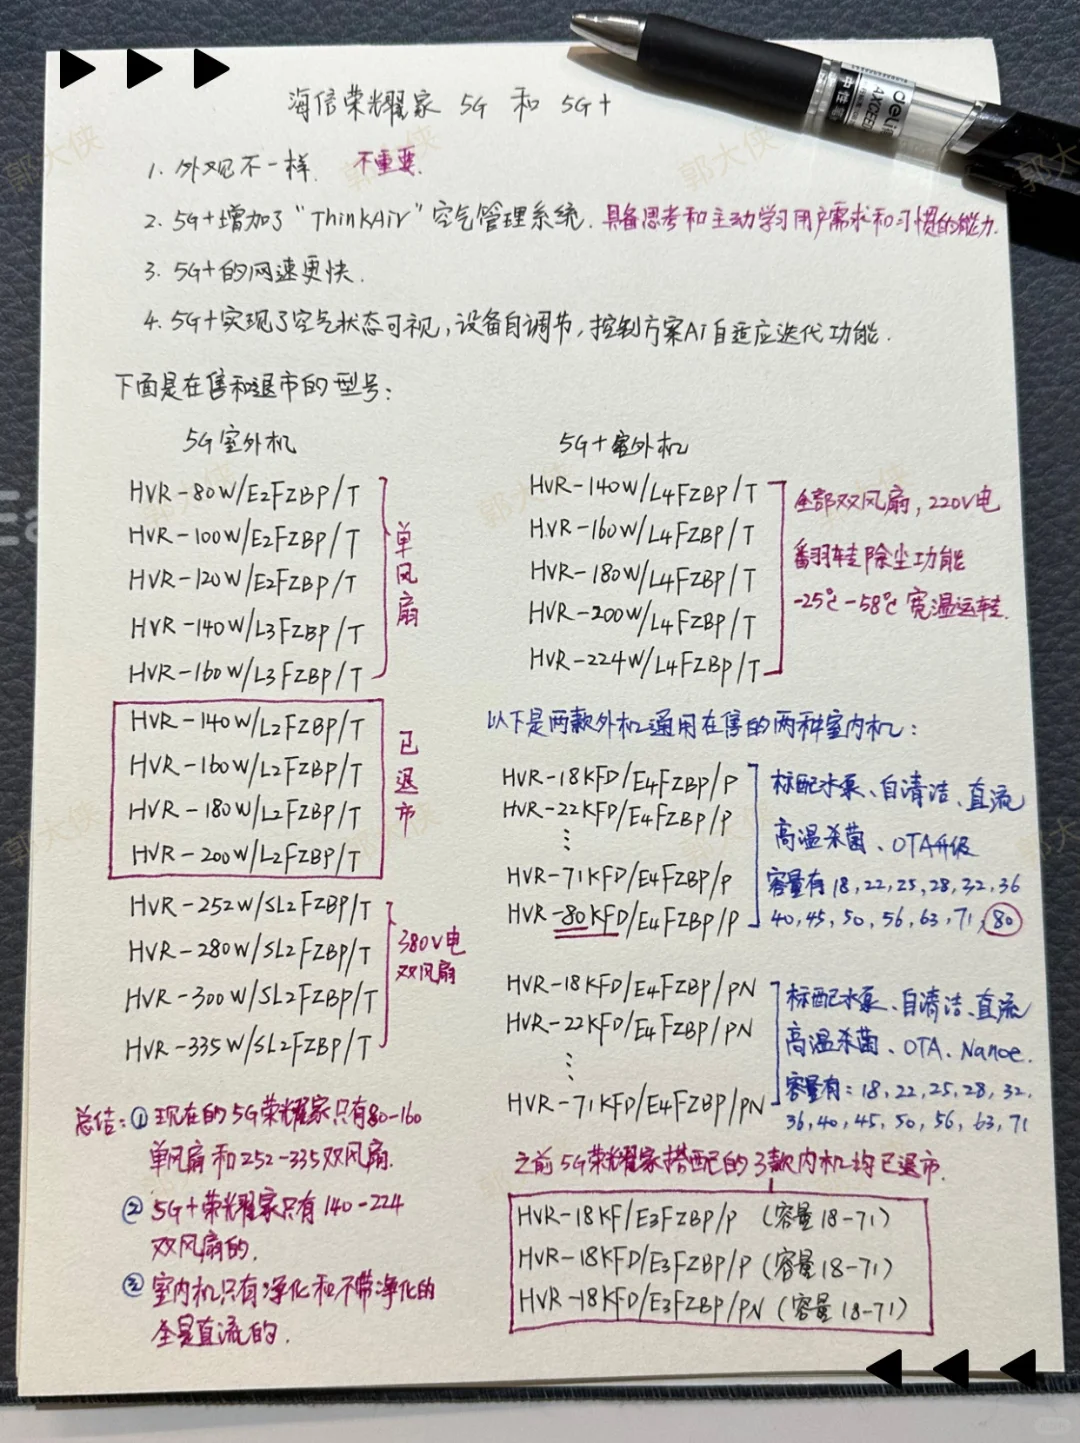 海信荣耀家 5G 和 5G+
1. 外观不一样. 不重要.
2. 5G+增加了“ThinkAir”空气管理系统. 具备思考和主动学习用户需求和习惯的能力.
3. 5G+的网速更快.
4. 5G+实现了空气状态可视,设备自调节,控制方案Ai自适应迭代功能.
下面是在售和退市的型号:
5G室外机
HVR-80W/E2FZBP/T
HVR-100W/E2FZBP/T
HVR-120W/E2FZBP/T
HVR-140W/L3FZBP/T
HVR-160W/L3FZBP/T
单风扇
HVR-140W/L2FZBP/T
HVR-160W/L2FZBP/T
HVR-180W/L2FZBP/T
HVR-200W/L2FZBP/T
已退市
HVR-252W/SL2FZBP/T
HVR-280W/SL2FZBP/T
HVR-300W/SL2FZBP/T
HVR-335W/SL2FZBP/T
380V电
双风扇
总结:①现在的5G荣耀家只有80-160
单风扇和252-335双风扇.
②5G+荣耀家只有140-224
双风扇的.
③室内机只有净化和不带净化的
全是直流的.
5G+室外机
HVR-140W/L4FZBP/T
HVR-160W/L4FZBP/T
HVR-180W/L4FZBP/T
HVR-200W/L4FZBP/T
HVR-224W/L4FZBP/T
全部双风扇,220V电
翻羽转除尘功能
-25℃-58℃宽温运转.
以下是两款外机通用在售的两种室内机:
HVR-18KFD/E4FZBP/P
HVR-22KFD/E4FZBP/P
⋮
HVR-71KFD/E4FZBP/P
HVR-80KFD/E4FZBP/P
标配水泵、自清洁、直流
高温杀菌、OTA升级
容量有18,22,25,28,32,36
40,45,50,56,63,71,80
HVR-18KFD/E4FZBP/PN
HVR-22KFD/E4FZBP/PN
⋮
HVR-71KFD/E4FZBP/PN
标配水泵、自清洁、直流
高温杀菌、OTA、Nanoe.
容量有:18,22,25,28,32.
36,40,45,50,56,63,71
之前5G荣耀家搭配的3款内机均已退市.
HVR-18KF/E3FZBP/P (容量18-71)
HVR-18KFD/E3FZBP/P (容量18-71)
HVR-18KFD/E3FZBP/PN (容量18-71)
deli
中性笔
郭大侠
郭大侠
郭大侠